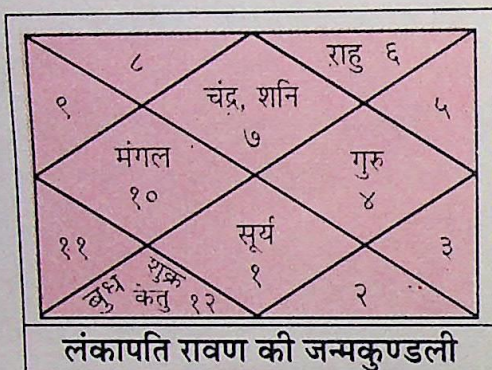 ८
राहु ६
९
चंद्र, शनि
७
५
मंगल
१०
गुरु
४
११
सूर्य
१
३
बुध शुक्र
केतु १२
२
लंकापति रावण की जन्मकुण्डली